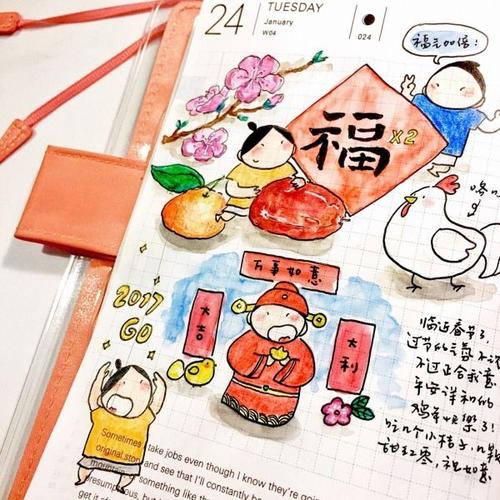 24
TUESDAY
January
W04
024
福气加倍!
福 x2
万事如意
大吉
大利
2017
GO
临近春节了,
过节的气氛不
不过正合我意
平安详和的
鸡年快乐了!
吃几个小桔子,几
甜红枣,祝如意
Sometimes take jobs even though I know they're going
original and see that I'll constantly
something like
get it